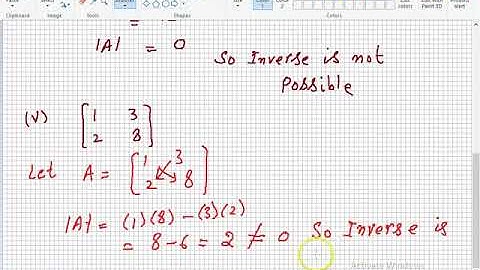 Shapes
Colors
|A| = 0
So Inverse is not
Possible
(V) [1 3
2 8]
Let A = [1 3
2 8]
|A| = (1)(8) - (3)(2)
= 8 - 6 = 2 ≠ 0 So Inverse is
Activate Windows